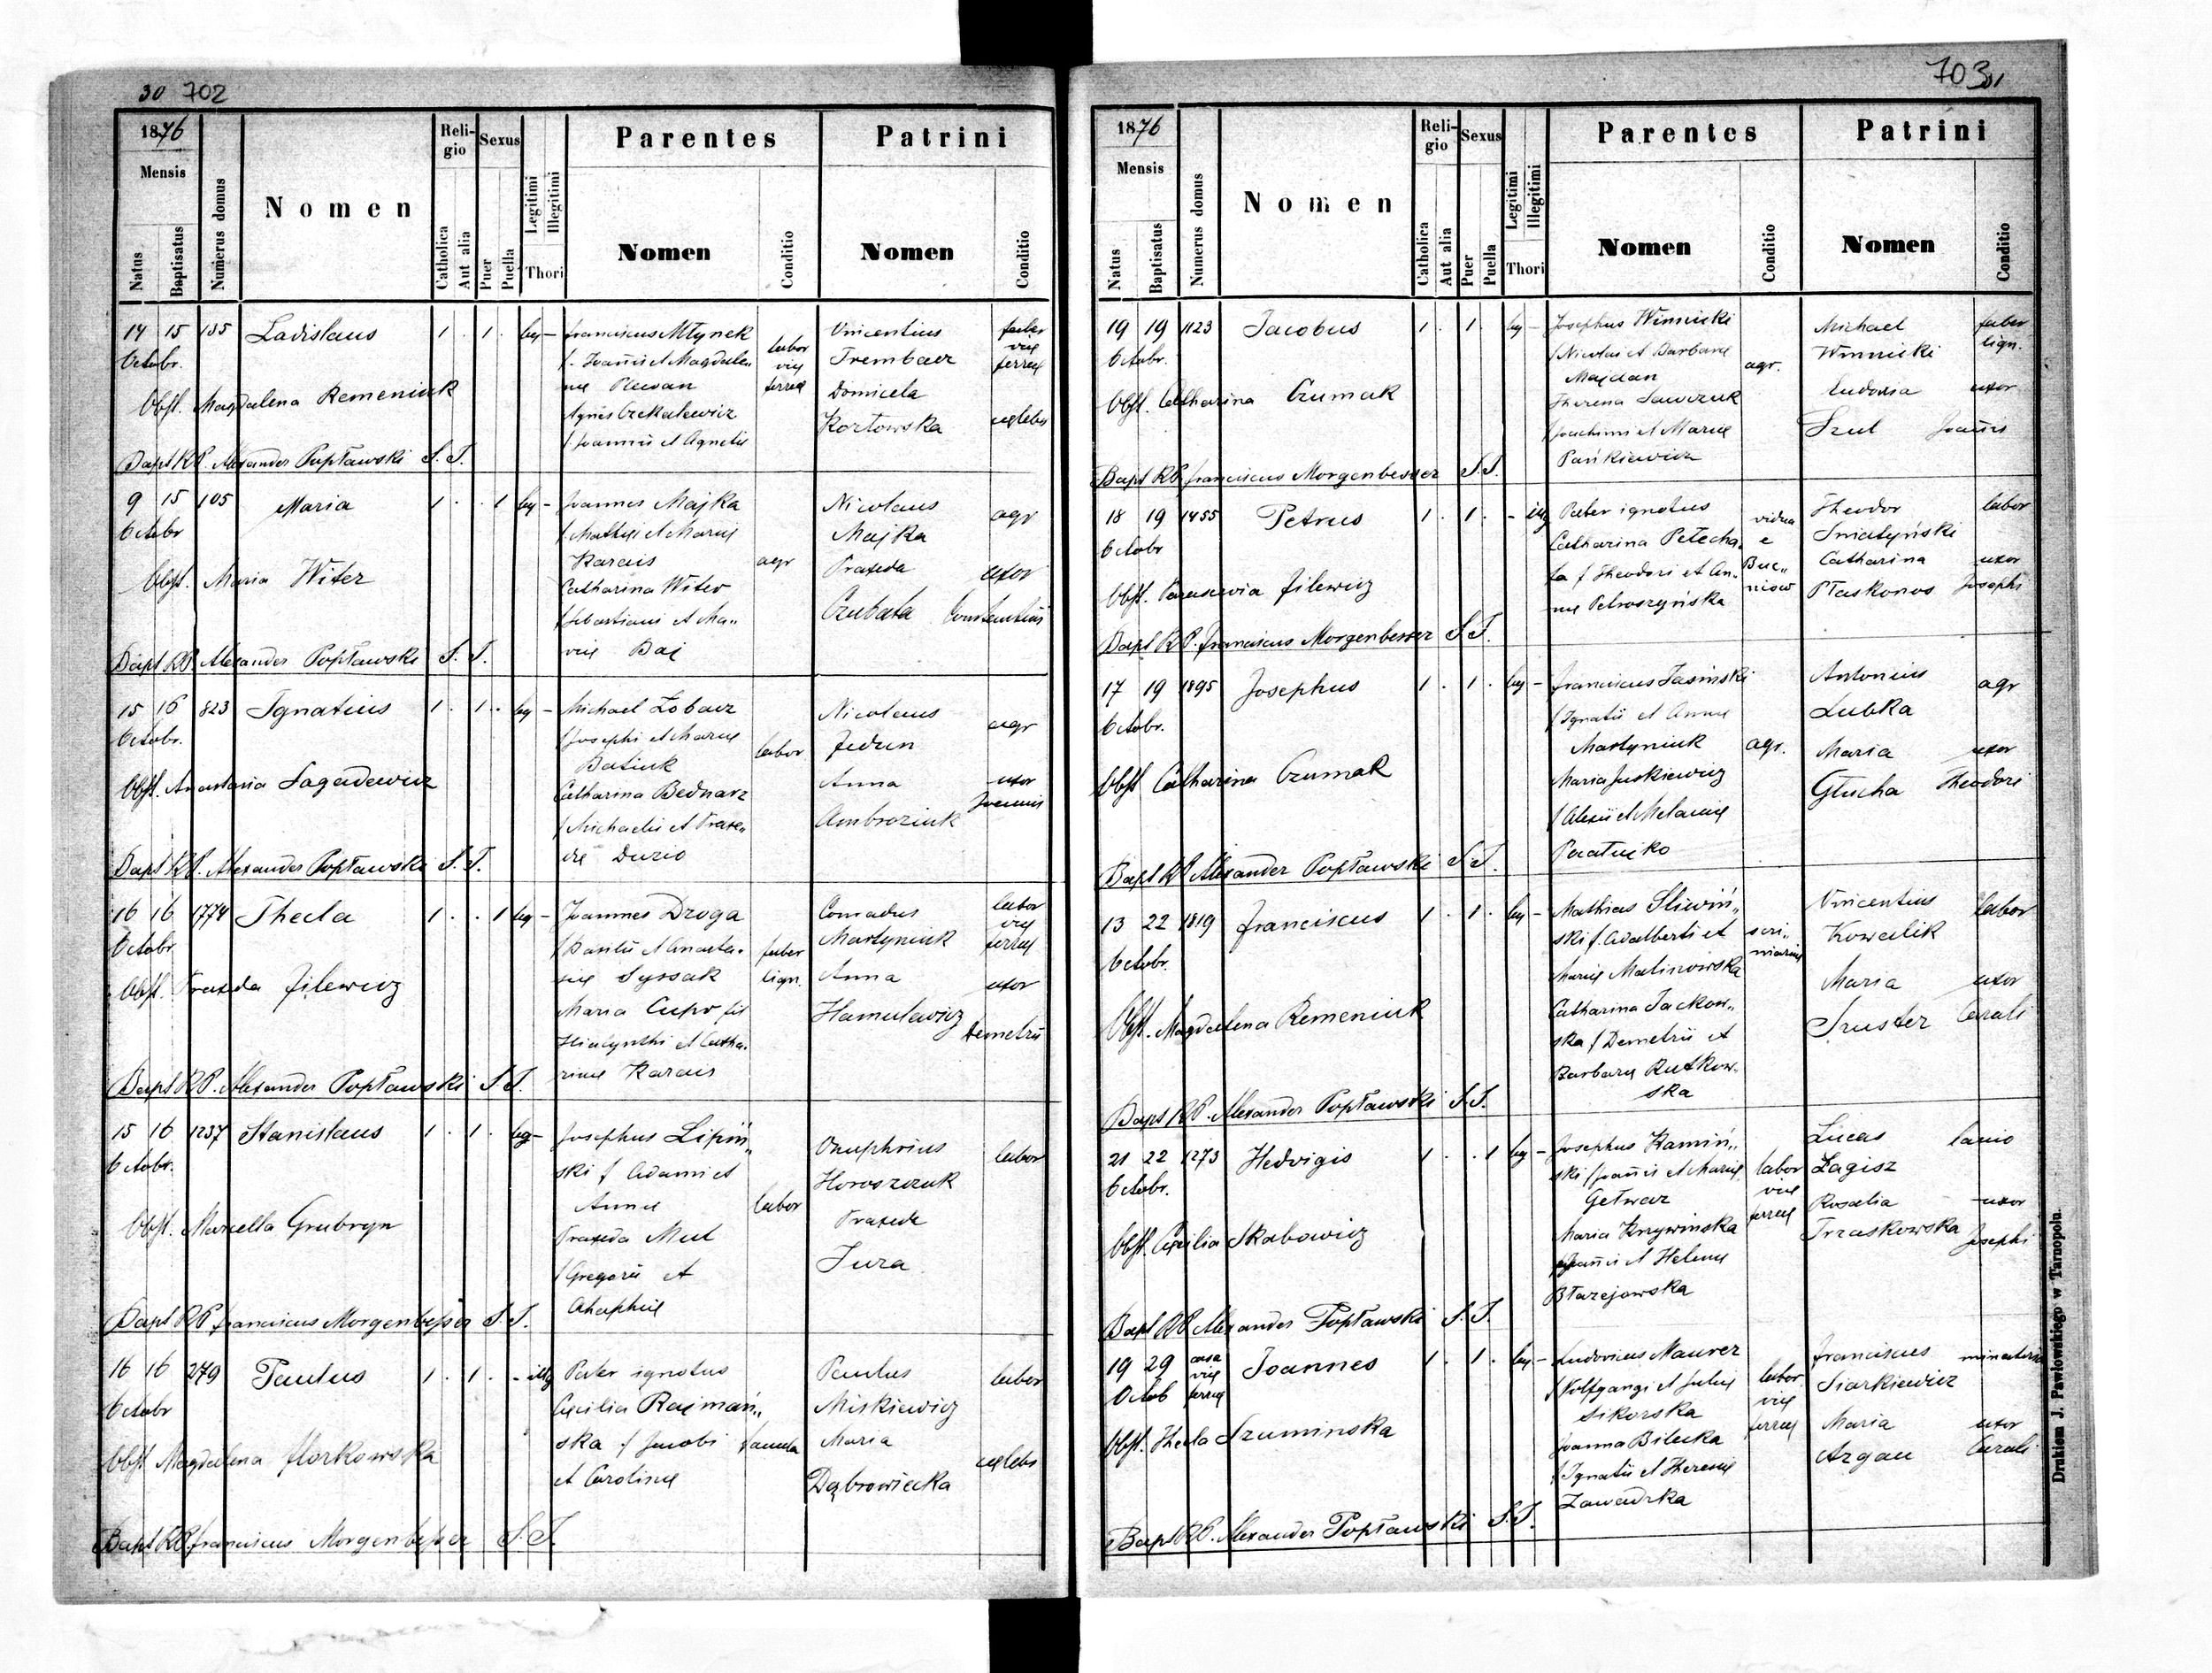 30 702
1876
Mensis
Natus
Baptisatus
Numerus domus
Nomen
Religio
Catholica
Aut alia
Sexus
Puer
Puella
Legitimi
Illegitimi
Thori
Parentes
Nomen
Conditio
Patrini
Nomen
Conditio
14 15 185 Ladislaus 1 . 1 . leg - Franciscus Młynek labor Vincentius faber
Octobr. f. Joannis et Magdale„ viæ Trembacz viæ
næ Plewan ferreæ Domicela ferreæ
Obst. Magdalena Remeniuk
Agnes Czekalewicz Kozłowska cælebs
f Joannis et Agnetis
Bapt RP. Alexander Popławski S.J.
9 15 105 Maria 1 . . 1 leg - Joannes Majka Nicolaus agr
Octobr f Mathei et Mariæ Majka
Karais agr Praxeda uxor
Obst. Maria Witer
Catharina Witer Czubata Constantini
f Sebastiani et Ma„
riæ Baj
Bapt RP. Alexander Popławski S.J.
15 16 823 Ignatius 1 . 1 . leg - Michael Łobacz Nicolaus agr
Octobr. f Josephi et Mariæ labor Fedun
Batiuk Anna uxor
Obst. Anastasia Sagadewicz
Catharina Bednarz Ambroziuk Joannis
f Michaelis et Praxe„
dæ Duzio
Bapt RP. Alexander Popławski S.J.
16 16 1774 Thecla 1 . . 1 leg - Joannes Droga Conradus labor
Octobr. f Basilii et Anasta„ faber Martyniuk viæ ferreæ
siæ Syssak lign. Anna uxor
Obst. Praxeda Filewicz
Maria Cupr fil Hamulewicz Demetrii
Hiacynthi et Catha„
rinæ Karais
Bapt RP. Alexander Popławski S.J.
15 16 1237 Stanislaus 1 . 1 . leg - Josephus Lipiń„ Onuphrius labor
Octobr. ski f Adami et Horoszczuk
Annæ labor Praxeda
Obst. Marcella Grubryn
Praxeda Mul Jura
f Gregorii et
Ahaphiæ
Bapt RP Franciscus Morgenbesser S.J.
16 16 279 Paulus 1 . 1 . - illeg Pater ignotus Paulus labor
Octobr Cæcilia Rajmań„ Miskiewicz
ska f Jacobi famula Maria cælebs
Obst Magdalena Horkowska
et Carolinæ Dąbrowiecka
Bapt RP. Franciscus Morgenbesser S.J.
703 31
1876
Mensis
Natus
Baptisatus
Numerus domus
Nomen
Religio
Catholica
Aut alia
Sexus
Puer
Puella
Legitimi
Illegitimi
Thori
Parentes
Nomen
Conditio
Patrini
Nomen
Conditio
19 19 1123 Jacobus 1 . 1 . leg - Josephus Winnicki Michael faber
Octobr. f Nicolai et Barbaræ agr. Winnicki lign.
Majdan Eudoxia uxor
Obst. Catharina Czumak
Theresa Sawczuk Szul Joannis
f Joachimi et Mariæ
Pańkiewicz
Bapt RP Franciscus Morgenbesser S.J.
18 19 1455 Petrus 1 . 1 . - illeg Pater ignotus vidua Theodor labor
Octobr Catharina Petecha„ e Sniatyński
ła f Theodori et An„ Buc„ Catharina uxor
Obst. Parascevia Filewicz
næ Petroszyńska niow Płaskonos Josephi
Bapt RP. Franciscus Morgenbesser S.J.
17 19 1895 Josephus 1 . 1 . leg - Franciscus Jasinski Antonius agr
Octobr. f Ignatii et Annæ Lubka
Martyniuk agr. Maria uxor
Obst Catharina Czumak
Maria Juskiewicz Głucha Theodori
f Alexii et Melaniæ
Bapt RP Alexander Popławski S.J.
13 22 1819 Franciscus 1 . 1 . leg - Mathias Sliwiń„ Vincentius labor
Octobr. ski f. Adalberti et scri„ Kowalik
Mariæ Malinowska niarius Maria uxor
Obst. Magdalena Remeniuk
Catharina Jackow„ Szuster Caroli
ska f Demetrii et
Barbaræ Rutkow„
ska
Bapt RP. Alexander Popławski S.J.
21 22 1273 Hedvigis 1 . . 1 leg - Josephus Kamiń„ Lucas lanio
Octobr. ski f Joannis et Mariæ labor Łagisz
Getwarz viæ Rosalia uxor
Obst. Cæcilia Skabowicz
Maria Krzywinska ferreæ Trzaskowska Josephi
f Joannis et Helenæ
Błazejowska
Bapt RP Alexander Popławski S.J.
19 29 casa viæ ferreæ Joannes 1 . 1 . leg - Ludovicus Maurer Franciscus
Octob f Wolfgangi et Juliæ labor Siarkiewicz
Sikorska viæ Maria uxor
Obst. Thecla Szuminska
Joanna Bilecka ferreæ Argan Caroli
f Ignatii et Theresiæ
Zawadzka
Bapt RP. Alexander Popławski S.J.
Drukiem J. Pawłowskiego w Tarnopolu.